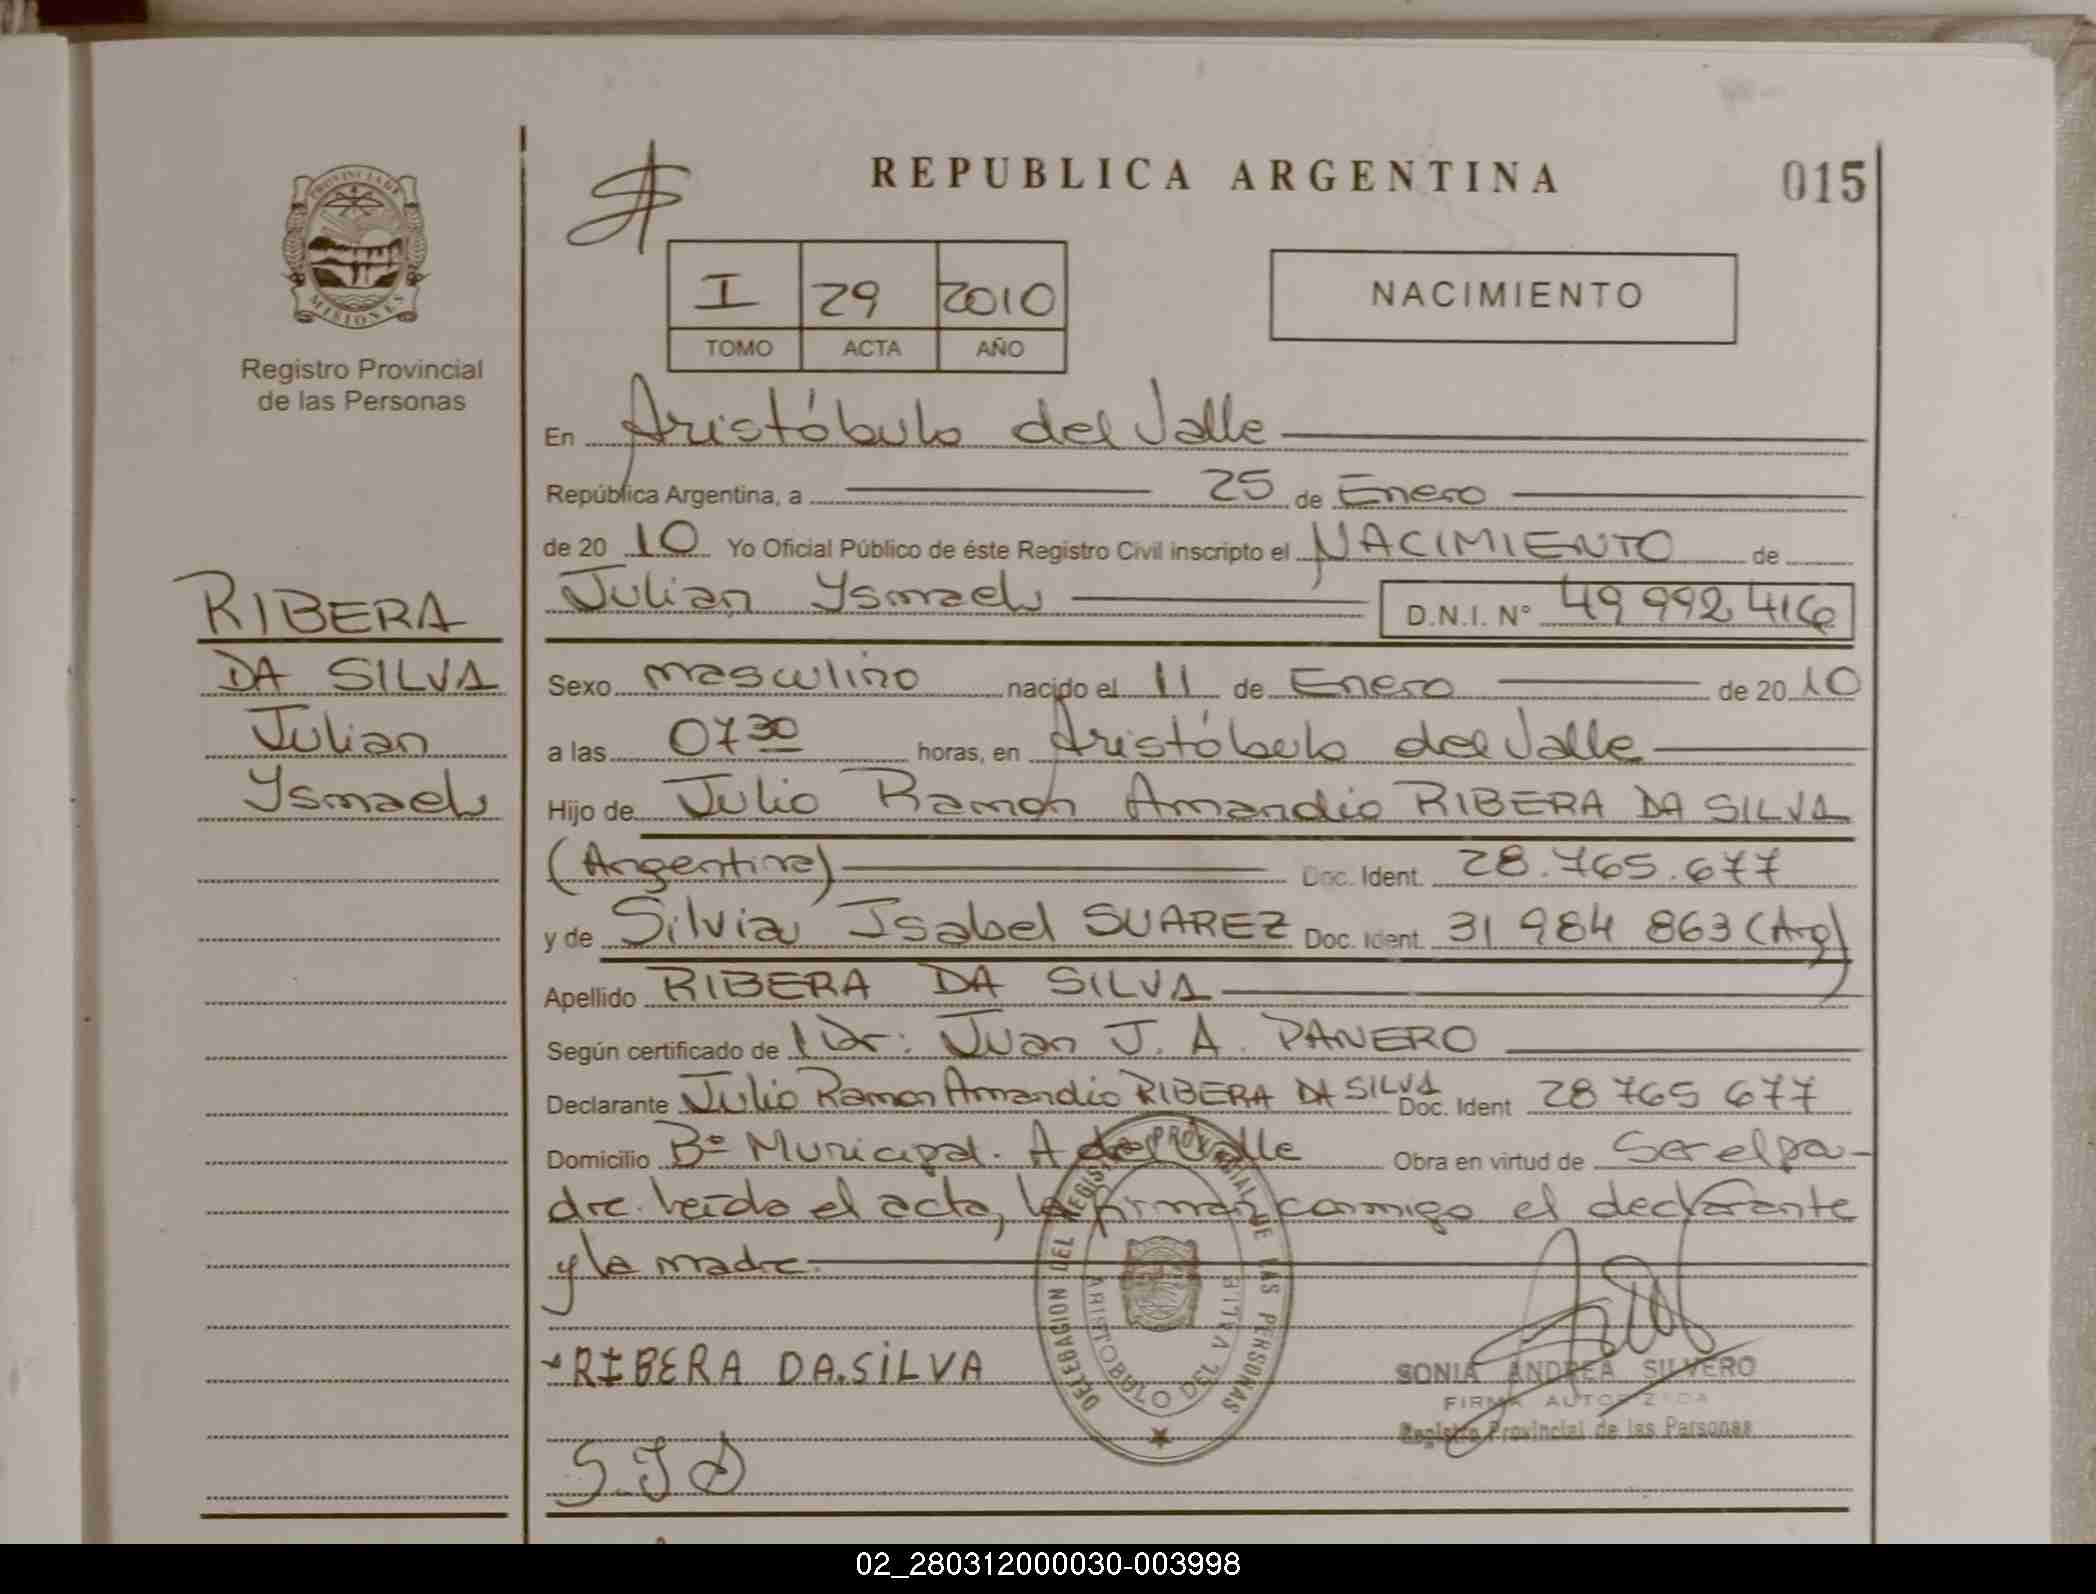 PROVINCIA DE
MISIONES
Registro Provincial
de las Personas
RIBERA
DA SILVA
Julian
Ysmael
REPUBLICA ARGENTINA
015
I 29 2010
TOMO ACTA AÑO
NACIMIENTO
En Aristóbulo del Valle
República Argentina, a 25 de Enero
de 20 10 Yo Oficial Público de éste Registro Civil inscripto el NACIMIENTO de
Julian Ysmael D.N.I. N° 49 992 416
Sexo masculino nacido el 11 de Enero de 20 10
a las 07 30 horas, en Aristóbulo del Valle
Hijo de Julio Ramon Amandio RIBERA DA SILVA
(Argentina) Doc. Ident. 28.765.677
y de Silvia Isabel SUAREZ Doc. Ident. 31 984 863 (Arg)
Apellido RIBERA DA SILVA
Según certificado de Dr: Juan J. A. PANERO
Declarante Julio Ramon Amandio RIBERA DA SILVA Doc. Ident 28 765 677
Domicilio Bº Municipal. A del Valle Obra en virtud de Ser el pa-
dre. Leído el acta, la firman conmigo el declarante
y la madre.
RIBERA DA.SiLVA
DELEGACION DEL REGISTRO PROVINCIAL DE LAS PERSONAS
ARISTOBULO DEL VALLE
SONIA ANDREA SILVERO
FIRMA AUTORIZADA
Registro Provincial de las Personas
02_280312000030-003998